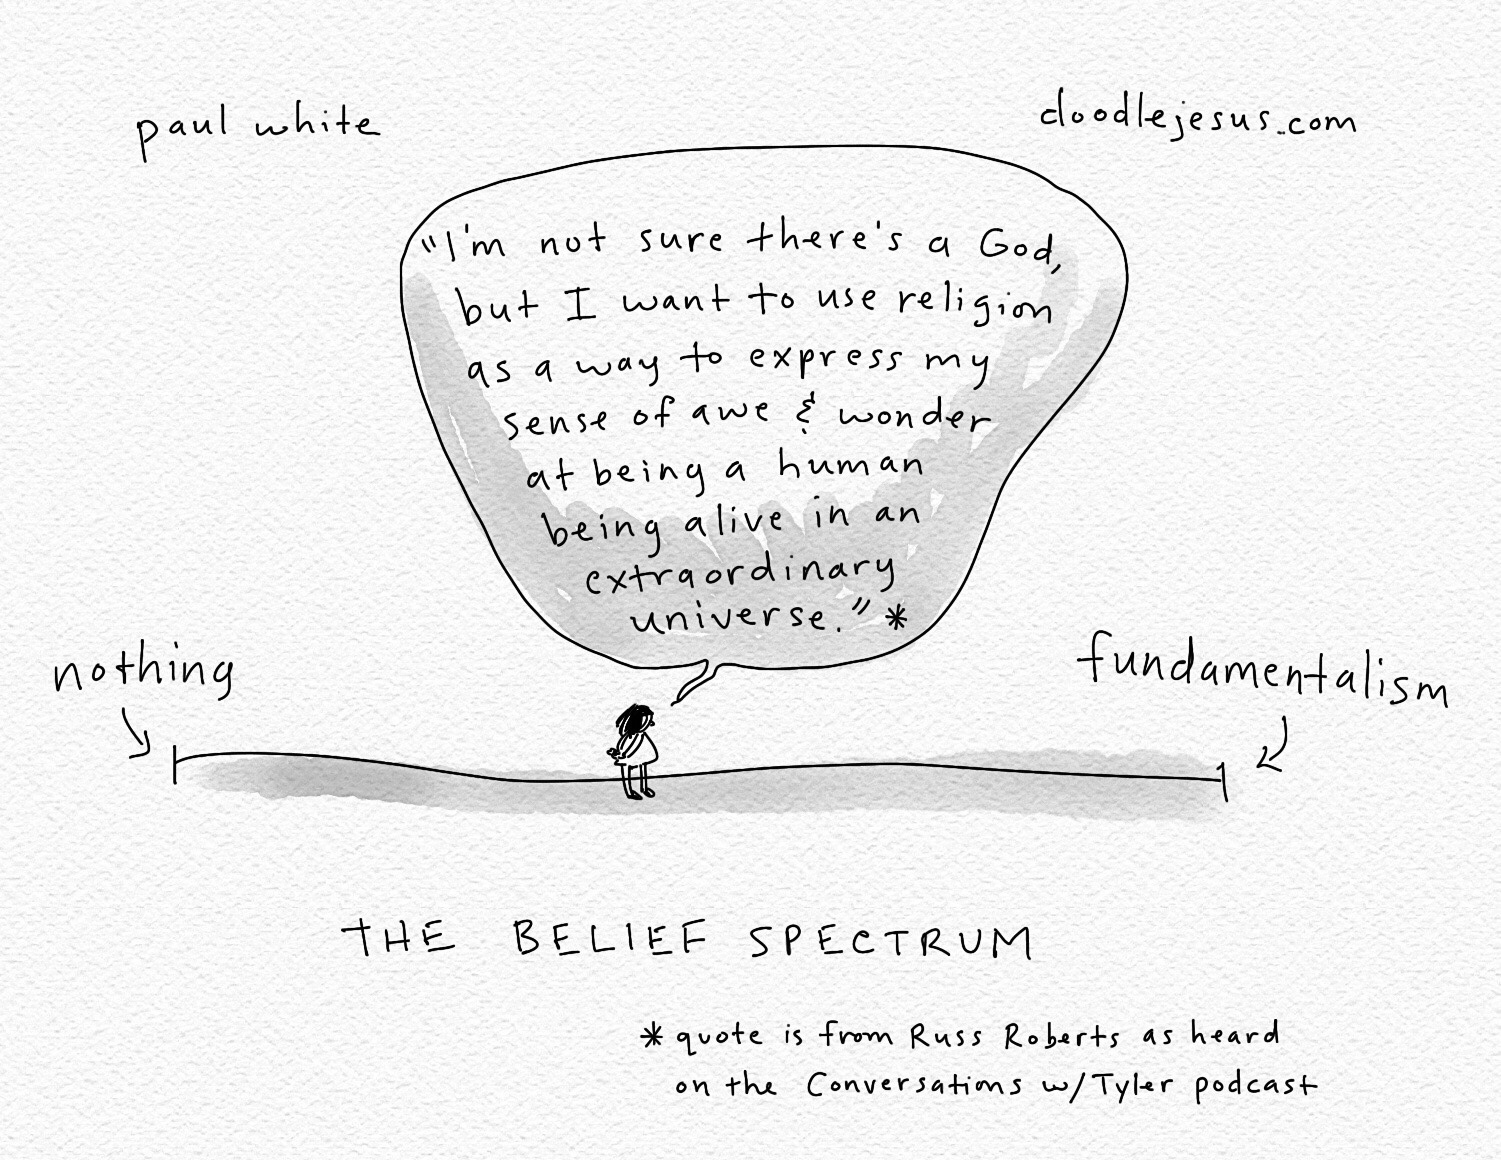 paul white
doodlejesus.com
"I'm not sure there's a God,
but I want to use religion
as a way to express my
sense of awe & wonder
at being a human
being alive in an
extraordinary
universe." *
nothing
fundamentalism
THE BELIEF SPECTRUM
* quote is from Russ Roberts as heard
on the Conversations w/Tyler podcast